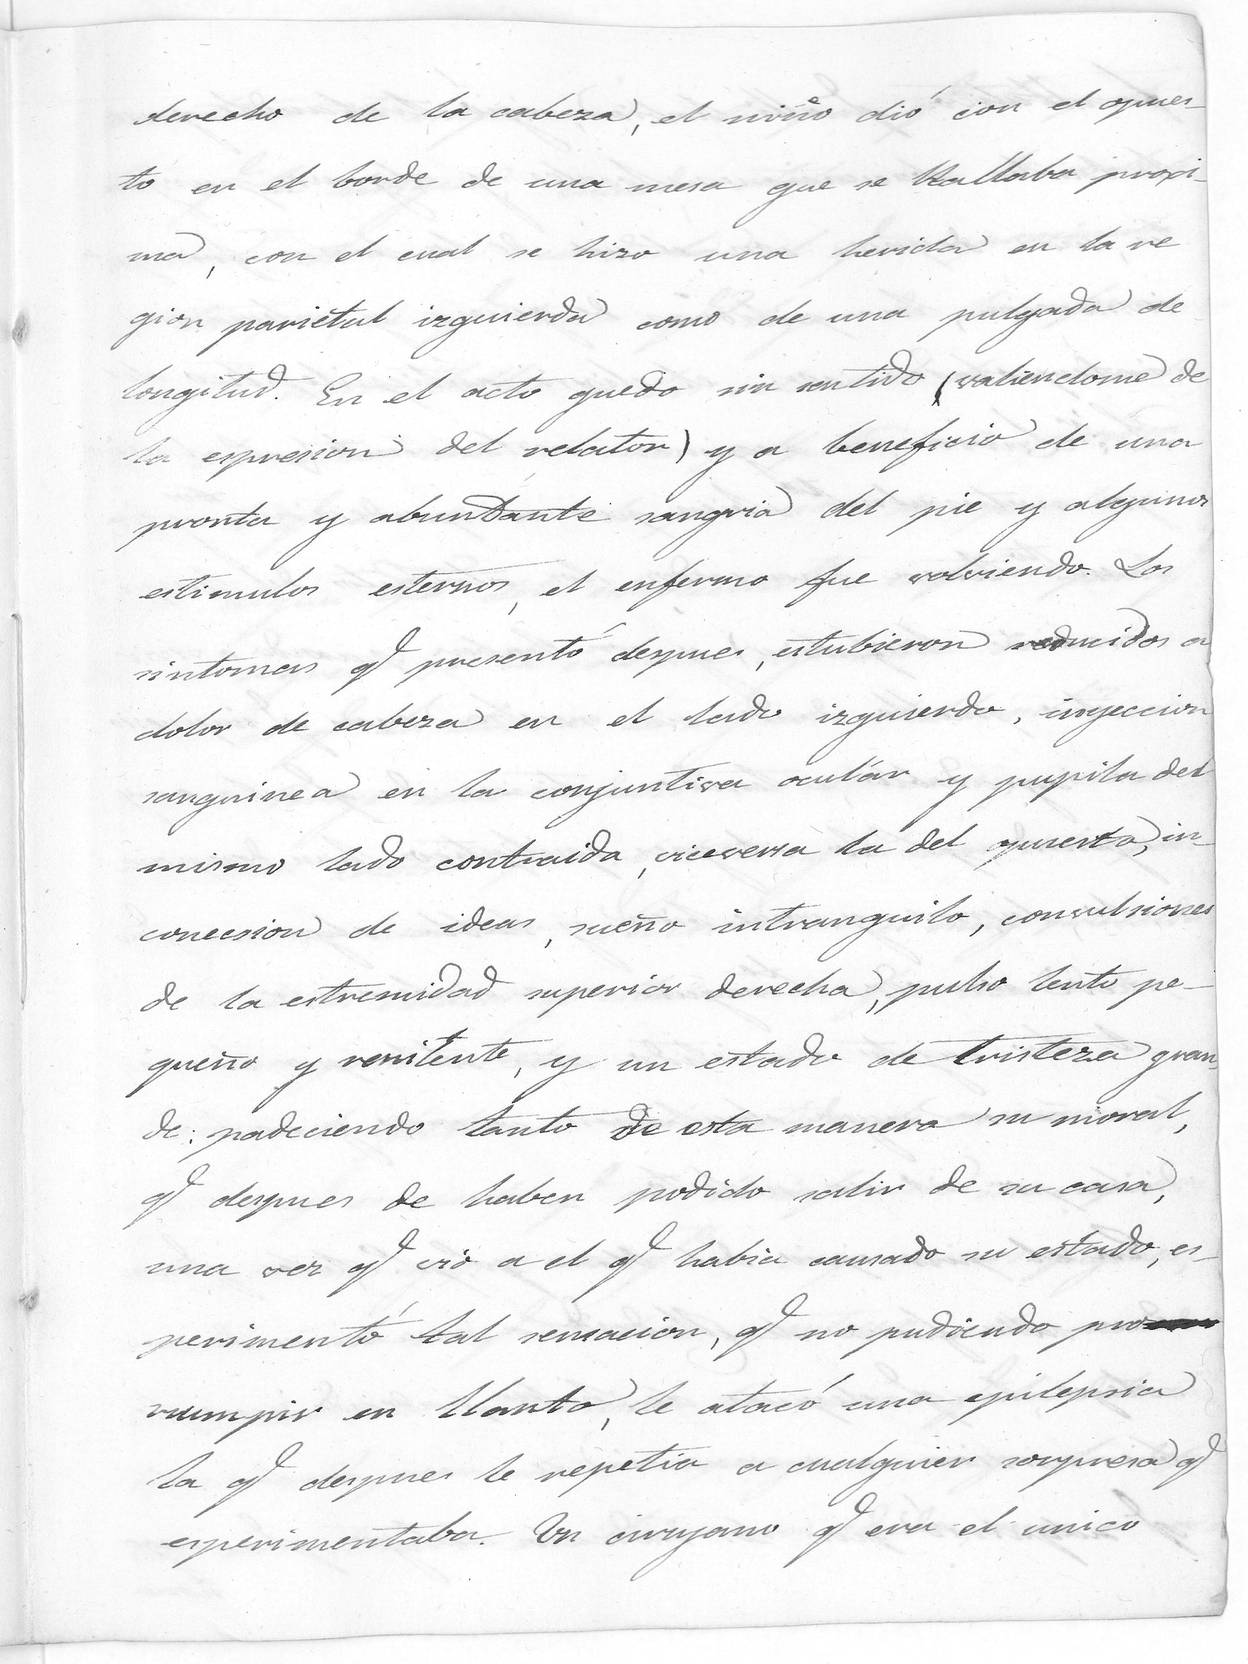 derecho de la cabeza, el niño dió con el opues-
to en el borde de una mesa que se hallaba proxi-
ma, con el cual se hizo una herida en la re
gion parietal izquierda como de una pulgada de
longitud. En el acto quedo sin sentido (valiendome de
la espresion del relator) y a beneficio de una
pronta y abundante sangria del pie y algunos
estimulos esternos, el enfermo fue volviendo. Los
sintomas q.e presentó despues, estubieron reducidos a
dolor de cabeza en el lado izquierdo, inyeccion
sanguinea en la conjuntiva ocular y pupila del
mismo lado contraida, viceversa la del opuesto, in-
conecsion de ideas, sueño intranquilo, convulsiones
de la estremidad superior derecha, pulso lento pe-
queño y renitente, y un estado de tristeza gran
de; padeciendo tanto de esta manera su moral,
q.e despues de haber podido salir de su casa,
una vez q.e vió a el q.e habia causado su estado, es-
perimentó tal sensacion, q.e no pudiendo pro
rrumpir en llanto, le atacó una epilepsia
la q.e despues le repetia a cualquier sorpresa q.e
esperimentaba. Un cirujano q.e era el unico